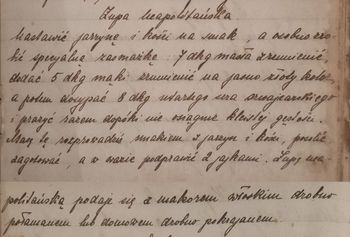 Zupa neapolitańska
Nastawić jarzynę i kości na smak, a osobno zro-
bić specjalną zasmażkę: 7 dkg masła zrumienić,
dodać 5 dkg mąki zrumienić na jasno złoty kolor
a potem dosypać 8 dkg utartego sera szwajcarskiego
i prażyć razem dopóki nie osiągnie kleistej gęstości.
Masę tę rozprowadzić smakiem z jarzyn i kości, posolić
zagotować, a w wazie podprawić 2 jajkami. Zupę nea-
politańską podaje się z makaronem włoskim drobno
połamanem lub domowem drobno pokrajanem.